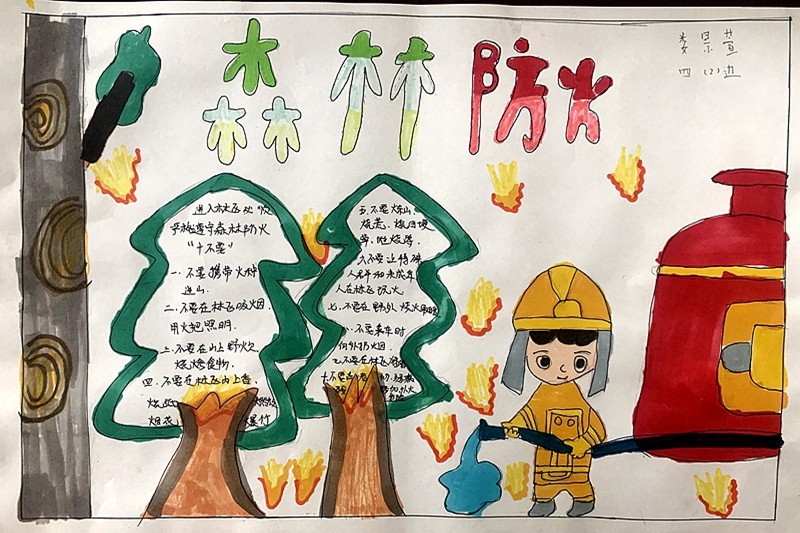 森林防火
四(2)班
进入林区必须
严格遵守森林防火
"十不要"
一.不要携带火种
进山.
二.不要在林区吸烟.
用火把照明.
三.不要在山上野炊
烧烤食物.
四.不要在林区内上香.
烟花、爆竹
五.不要炼山.
烧荒、烧田埂
草、堆烧等.
六不要让特殊
人群和未成年
人在林区玩火.
七.不要在野外烧火取暖
八.不要乘车时
向外扔烟